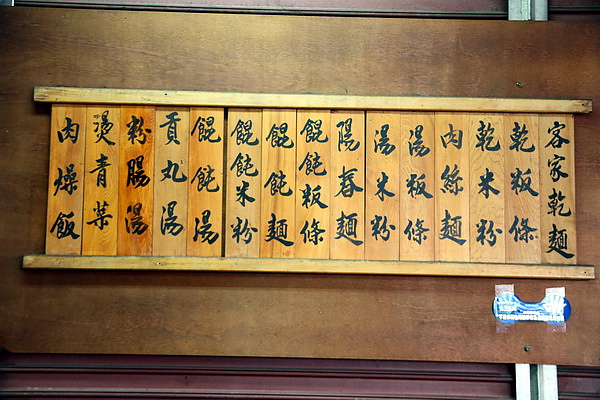 客家乾麵
乾粄條
乾米粉
肉絲麵
湯粄條
湯米粉
陽春麵
餛飩粄條
餛飩麵
餛飩米粉
餛飩湯
貢丸湯
粉腸湯
燙青菜
肉燥飯